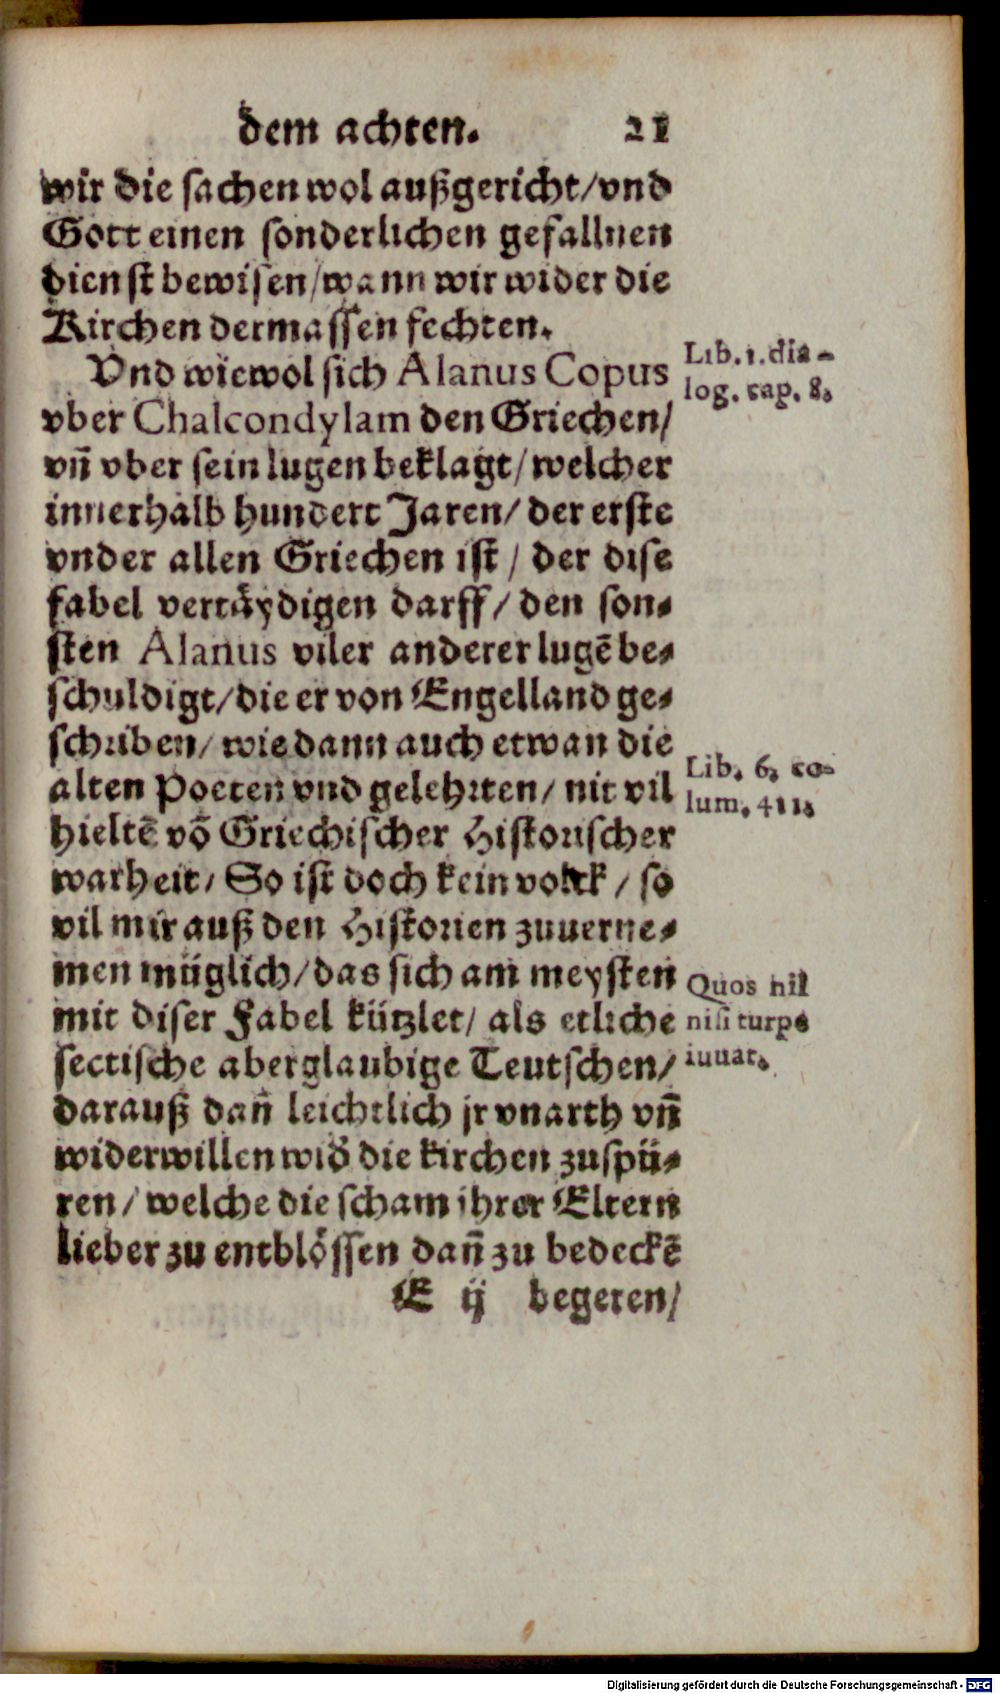 dem achten. 21
wir die sachen wol außgericht/vnd
Gott einen sonderlichen gefallnen
dienst bewisen/wann wir wider die
Kirchen dermassen fechten.
Vnd wiewol sich Alanus Copus
vber Chalcondylam den Griechen/
vñ vber sein lugen beklagt/welcher
innerhalb hundert Jaren/ der erste
vnder allen Griechen ist / der dise
fabel vertäydigen darff/ den son-
sten Alanus viler anderer lugẽ be-
schuldigt/die er von Engelland ge-
schriben/ wie dann auch etwan die
alten Poeten vnd gelehrten/ nit vil
hieltẽ võ Griechischer Historischer
warheit/ So ist doch kein volck / so
vil mir auß den Historien zuuerne-
men müglich/das sich am meysten
mit diser Fabel kützlet/ als etliche
sectische aberglaubige Teutschen/
darauß dañ leichtlich jr vnarth vñ
widerwillen wid' die kirchen zuspü-
ren/ welche die scham ihrer Eltern
lieber zu entblössen dañ zu bedeckẽ
E ij begeren/
Lib. 1. dia-
log. cap. 8.
Lib. 6. co-
lum. 411.
Quos nil
nisi turpe
iuuat.
Digitalisierung gefördert durch die Deutsche Forschungsgemeinschaft - DFG